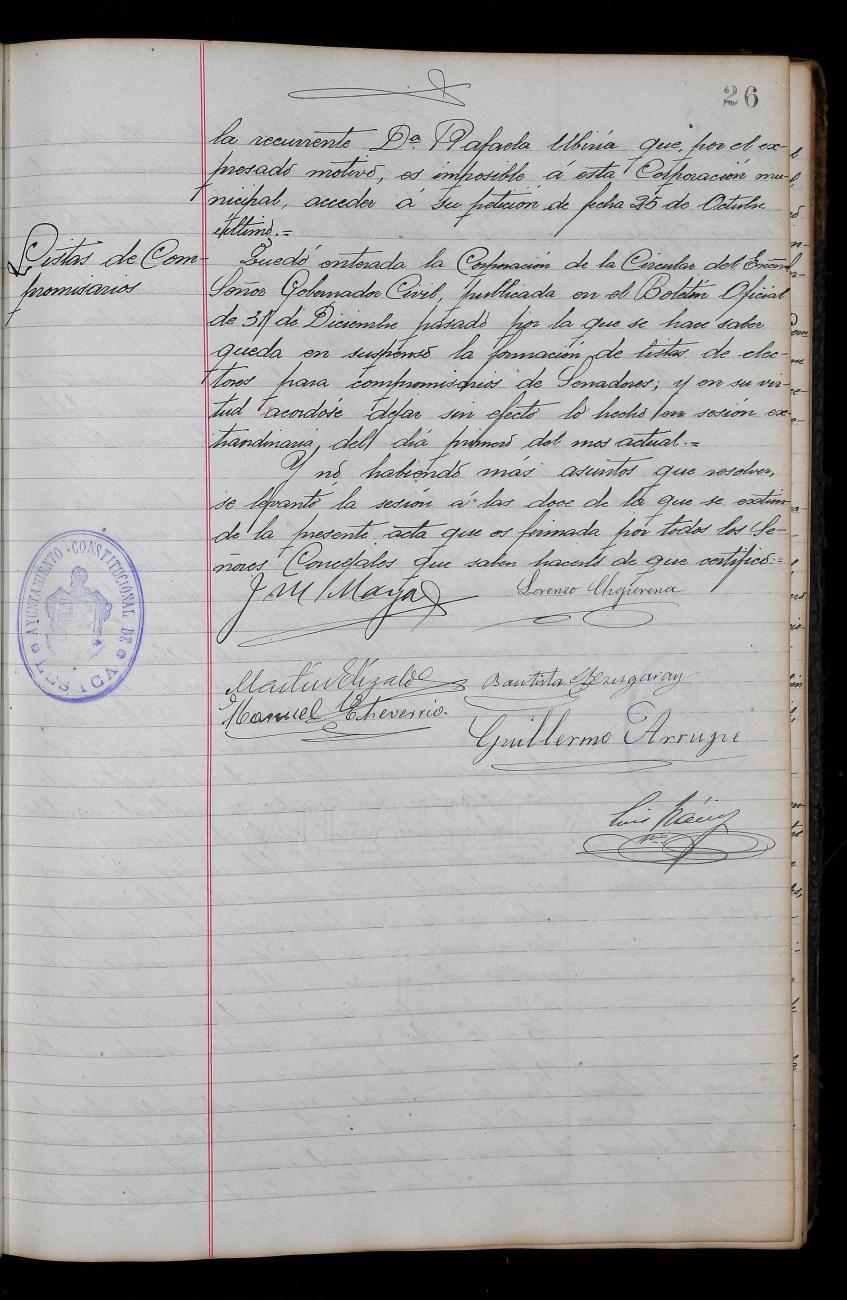 26
la recurrente Dª Rafaela Ubiria que, por el ex-
presado motivo, es imposible á esta Corporación mu-
nicipal, acceder á su petición de fecha 25 de Octubre
último.=
Listas de Com-
promisarios
Quedó enterada la Corporación de la Circular del Excmo
Señor Gobernador Civil, publicada en el Boletín Oficial
de 31 de Diciembre pasado por la que se hace saber
queda en suspenso la formación de listas de elec-
tores para compromisarios de Senadores; y en su vir-
tud acordóse dejar sin efecto lo hecho en sesión ex-
trandinaria, del día primero del mes actual.=
Y no habiendo más asuntos que resolver,
se levantó la sesión á las doce de la que se extien-
de la presente acta que es firmada por todos los Se-
ñores Concejales que saben hacerlo de que certifico.=
J M Maya
Lorenzo
AYUNTAMIENTO CONSTITUCIONAL DE
LESACA
Martín Elizalde
Bautista
Manuel Echeverria.
Guillermo Arrupe
Luis